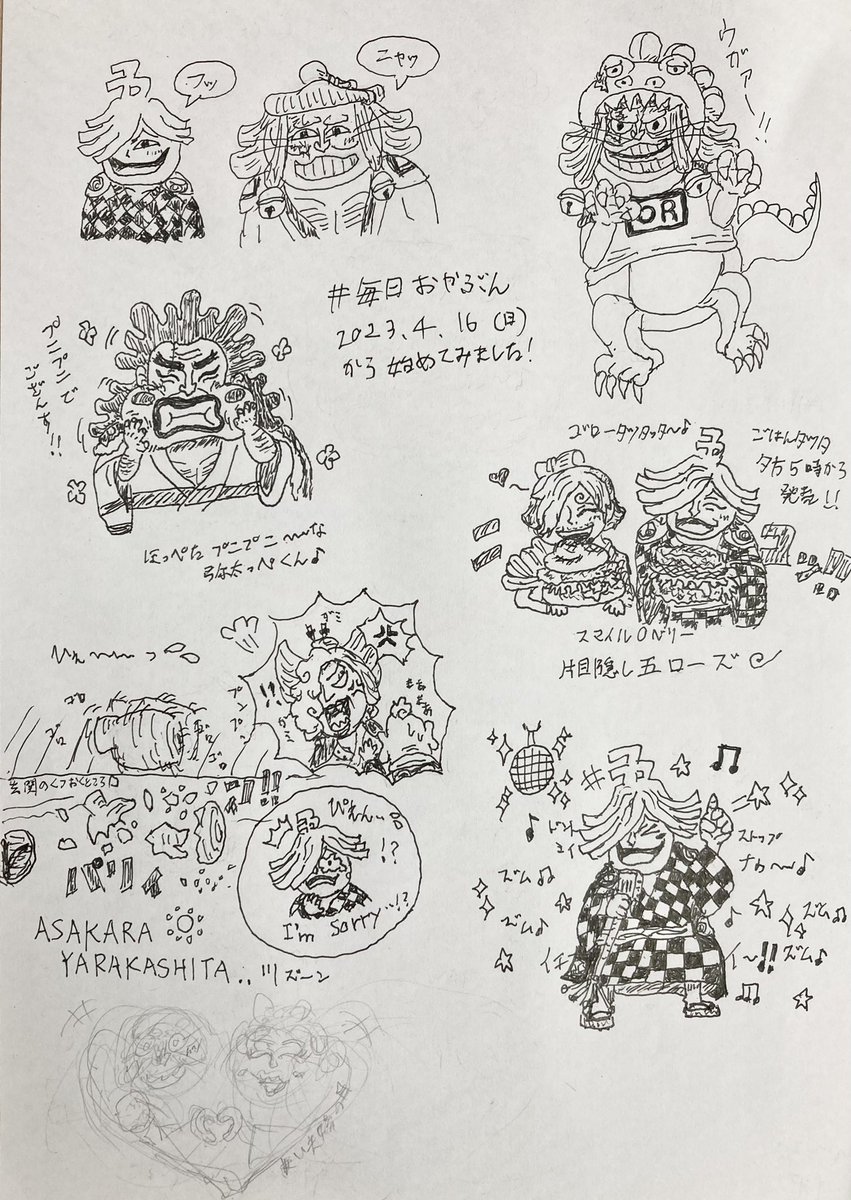 フッ
ニャッ
ウガァー!!
OR
#毎日おやぶん
2023.4.16(日)
から始めてみました!
プニプニで
ござんす!!
ほっぺたプニプニ〜な
弥太っぺくん♪
ゴローダツタッタ〜♪
ごはんタツタ
夕方5時から
発売!!
スマイル0ベリー
片目隠し五ローズ
ひぇ〜〜っ
ゴロ
ゴロ
ゴロ
ガミ
ガミ
プン
プン
!?
玄関のくつおくところ
ぴえん
!?
I'm sorry…!?
ASAKARA
YARAKASHITA..
ズーン
ドント
ストップ
ナウ〜♪
ズム♫
ズム♪
ズム♫
ズム♪
イ〜!!